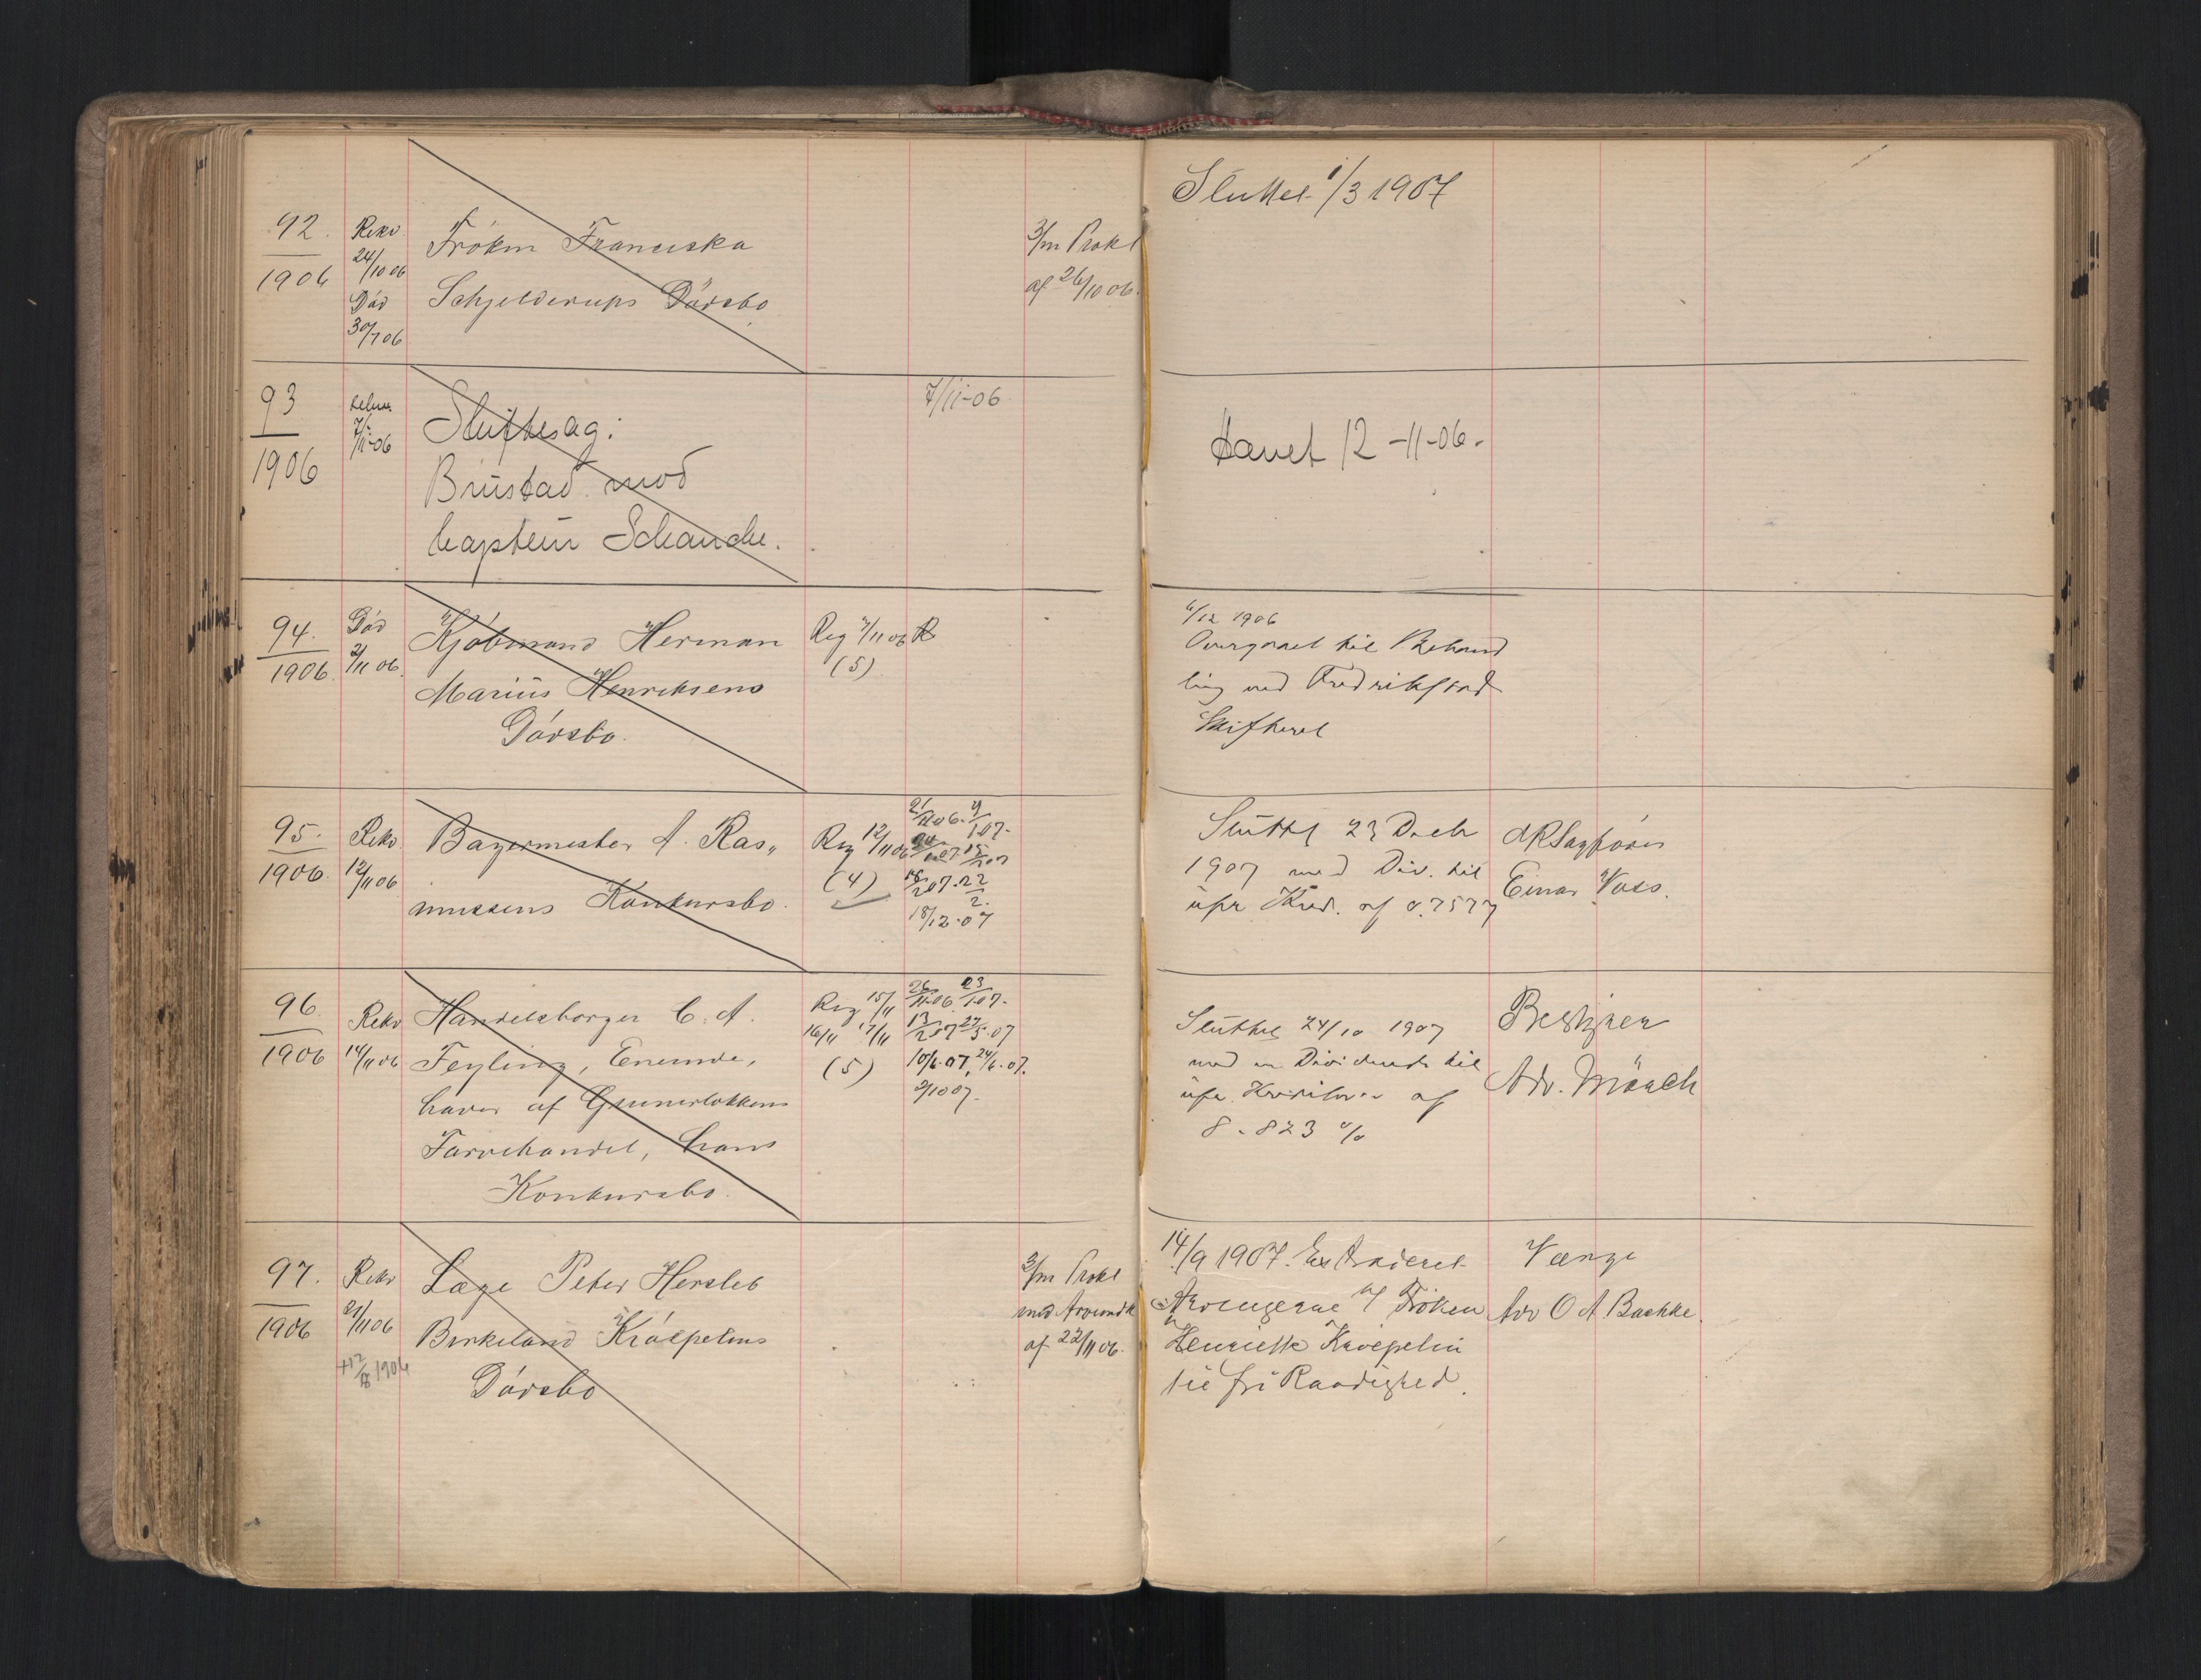 92.
1906
Rekv.
24/10 06
Död
30/7 06
Fröken Franciska
Schjelderups Dödsbo
3/m Prokl
af 26/10 06.
Sluttet 1/3 1907
93
1906
7/11-06
Skiftesag:
Brustad mod
Captein Schanche.
7/11-06
Hævet 12-11-06.
94.
1906.
Död
2/11 06.
Kjöbmand Herman
Marius Henriksens
Dödsbo.
Reg 7/11 06
(5)
R
6/12 1906
Overgaaet til Behand
ling ved Fredrikstad
Skifteret
95.
1906.
Rekv.
12/11 06
Bagermester A. Ras„
mussens Konkursbo.
Reg 12/11 06
(4)
18/12.07
Sluttet 23 Decbr
1907 med Div. til
upr Kred. af
Einar Voss.
96.
1906
Rekv
14/11 06
Handelsborger C. A.
Feyling, Eneinde„
haver af Grunerløkkens
Farvehandel, hans
Konkursbo.
Reg 15/11
16/11 17/11
(5)
26/11.06 23/1.07.
13/2.07 27/5.07
10/6.07, 24/6.07.
2/10 07.
Sluttet 24/10 1907
med en Dividende til
upr. Kreditorer af
8.823 %
Bestyrer
Adv. Mönch
97.
1906
Rekv
21/11 06
Læge Peter Hersleb
Birkeland Kräepelins
Dödsbo
3/m Prokl
med Arveindk
af 22/11 06.
14/9 1907. Extraderet
Arvingerne v/ Fröken
Henriette Kræpelin
til fri Raadighed.
Værge
Adv O A Bachke.